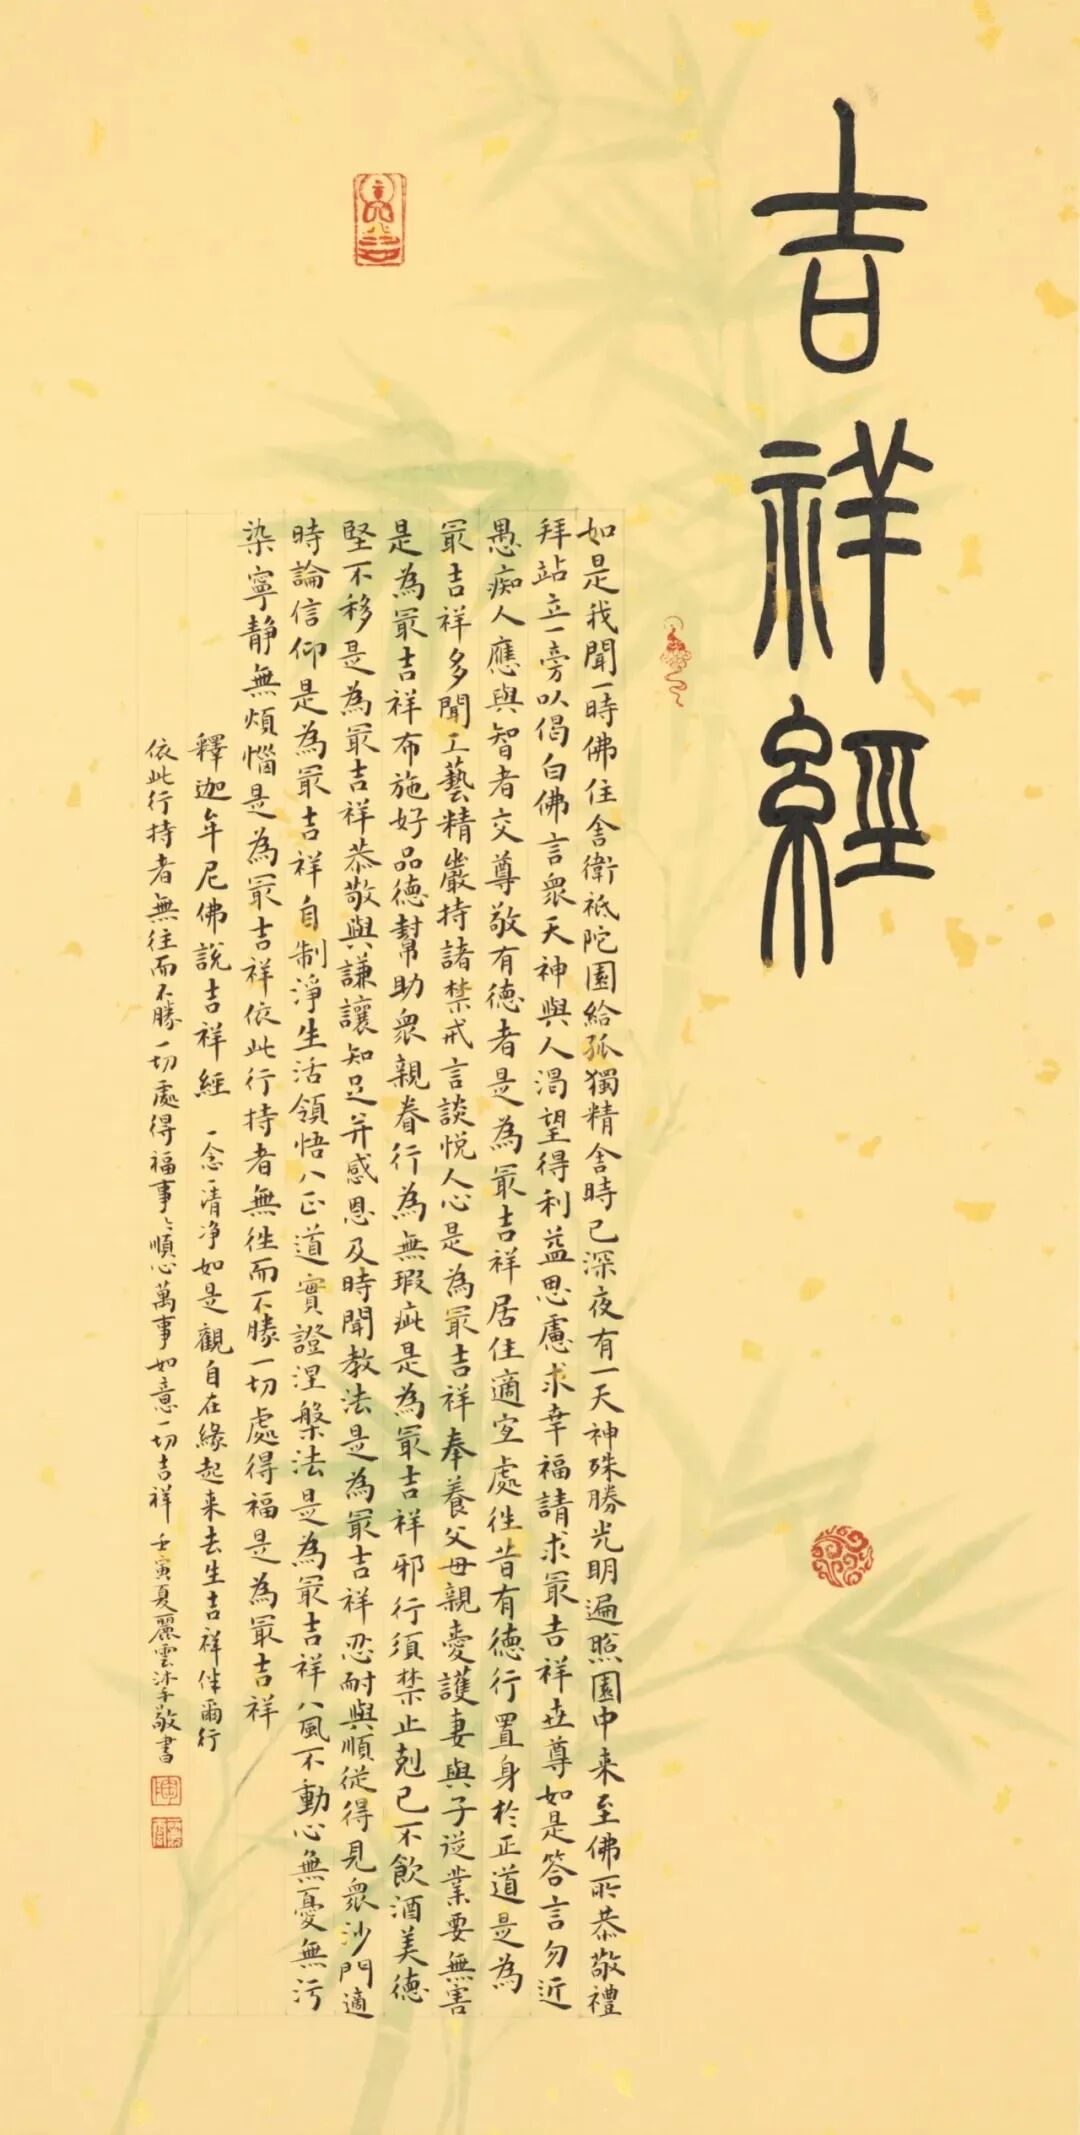 吉祥經
如是我聞一時佛住舍衛祇陀園給孤獨精舍時已深夜有一天神殊勝光明遍照園中来至佛所恭敬禮
拜站立一旁以偈白佛言眾天神與人渴望得利益思慮求幸福請求最吉祥世尊如是答言勿近
愚痴人應與智者交尊敬有德者是為最吉祥居住適宜處往昔有德行置身於正道是為
最吉祥多聞工藝精嚴持諸禁戒言談悅人心是為最吉祥奉養父母親愛護妻與子從業要無害
是為最吉祥布施好品德幫助眾親眷行為無瑕疵是為最吉祥邪行須禁止剋己不飲酒美德
堅不移是為最吉祥恭敬與謙讓知足并感恩及時聞教法是為最吉祥忍耐與順從得見眾沙門適
時論信仰是為最吉祥自制淨生活領悟八正道實證涅槃法是為最吉祥八風不動心無憂無污
染寧靜無煩惱是為最吉祥依此行持者無往而不勝一切處得福是為最吉祥
釋迦牟尼佛說吉祥經 一念清净如是觀自在緣起来去生吉祥伴爾行
依此行持者無往而不勝一切處得福事々順心萬事如意一切吉祥 壬寅夏麗雲沐手敬書